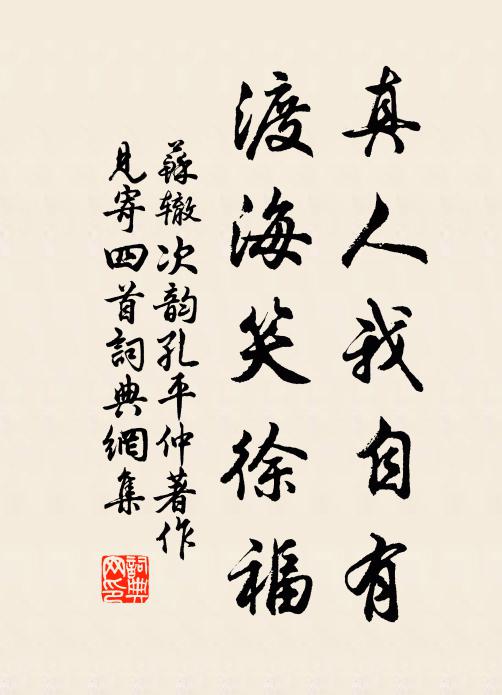 真人我自有
渡海笑徐福
蘇辙次韵孔平仲著作
見寄四首詞典網集
詞典网印